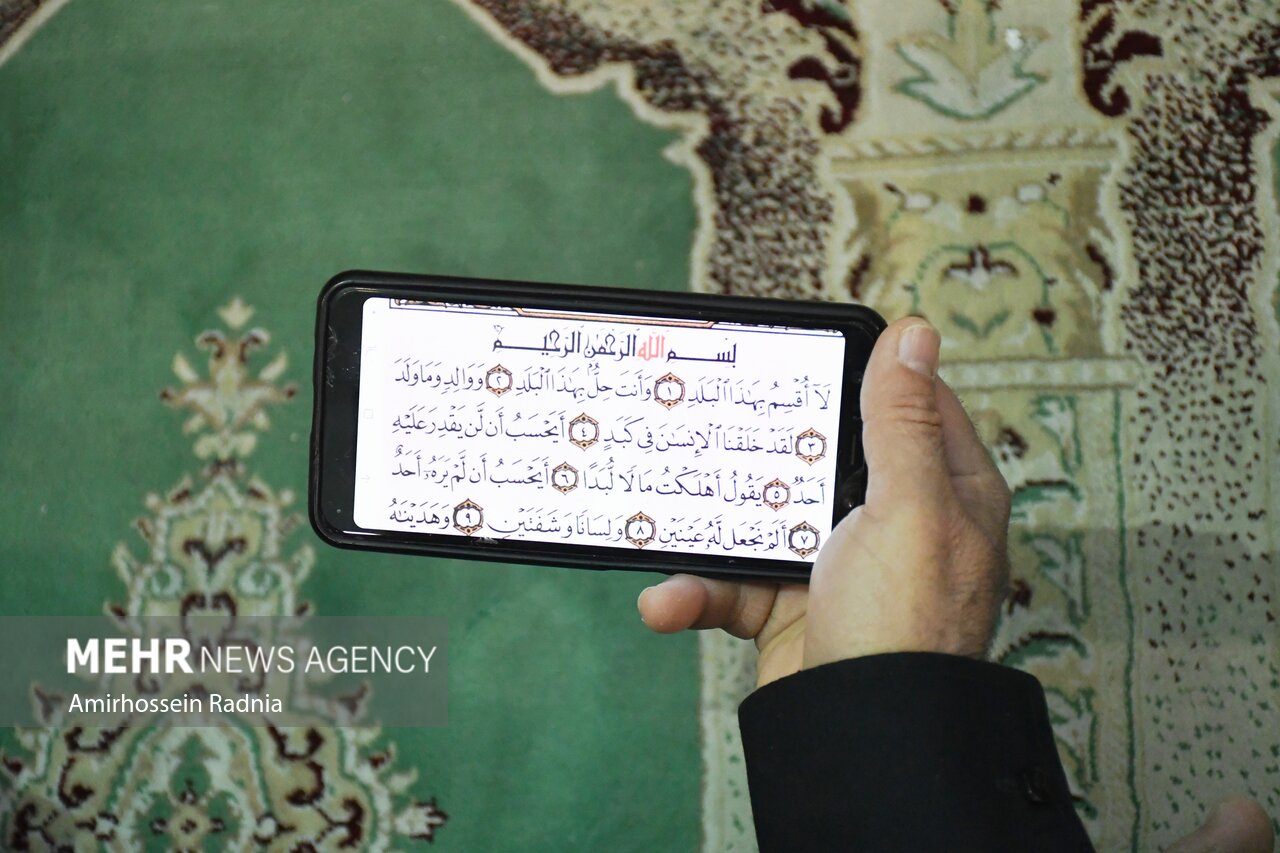 بِسْمِ اللَّهِ الرَّحْمَٰنِ الرَّحِيمِ
لَآ أُقْسِمُ بِهَٰذَا ٱلْبَلَدِ ١ وَأَنتَ حِلٌّۢ بِهَٰذَا ٱلْبَلَدِ ٢ وَوَالِدٍ وَمَا وَلَدَ
٣ لَقَدْ خَلَقْنَا ٱلْإِنسَٰنَ فِى كَبَدٍ ٤ أَيَحْسَبُ أَن لَّن يَقْدِرَ عَلَيْهِ
أَحَدٌ ٥ يَقُولُ أَهْلَكْتُ مَالًا لُّبَدًا ٦ أَيَحْسَبُ أَن لَّمْ يَرَهُۥٓ أَحَدٌ
٧ أَلَمْ نَجْعَل لَّهُۥ عَيْنَيْنِ ٨ وَلِسَانًا وَشَفَتَيْنِ ٩ وَهَدَيْنَٰهُ
MEHR NEWS AGENCY
Amirhossein Radnia